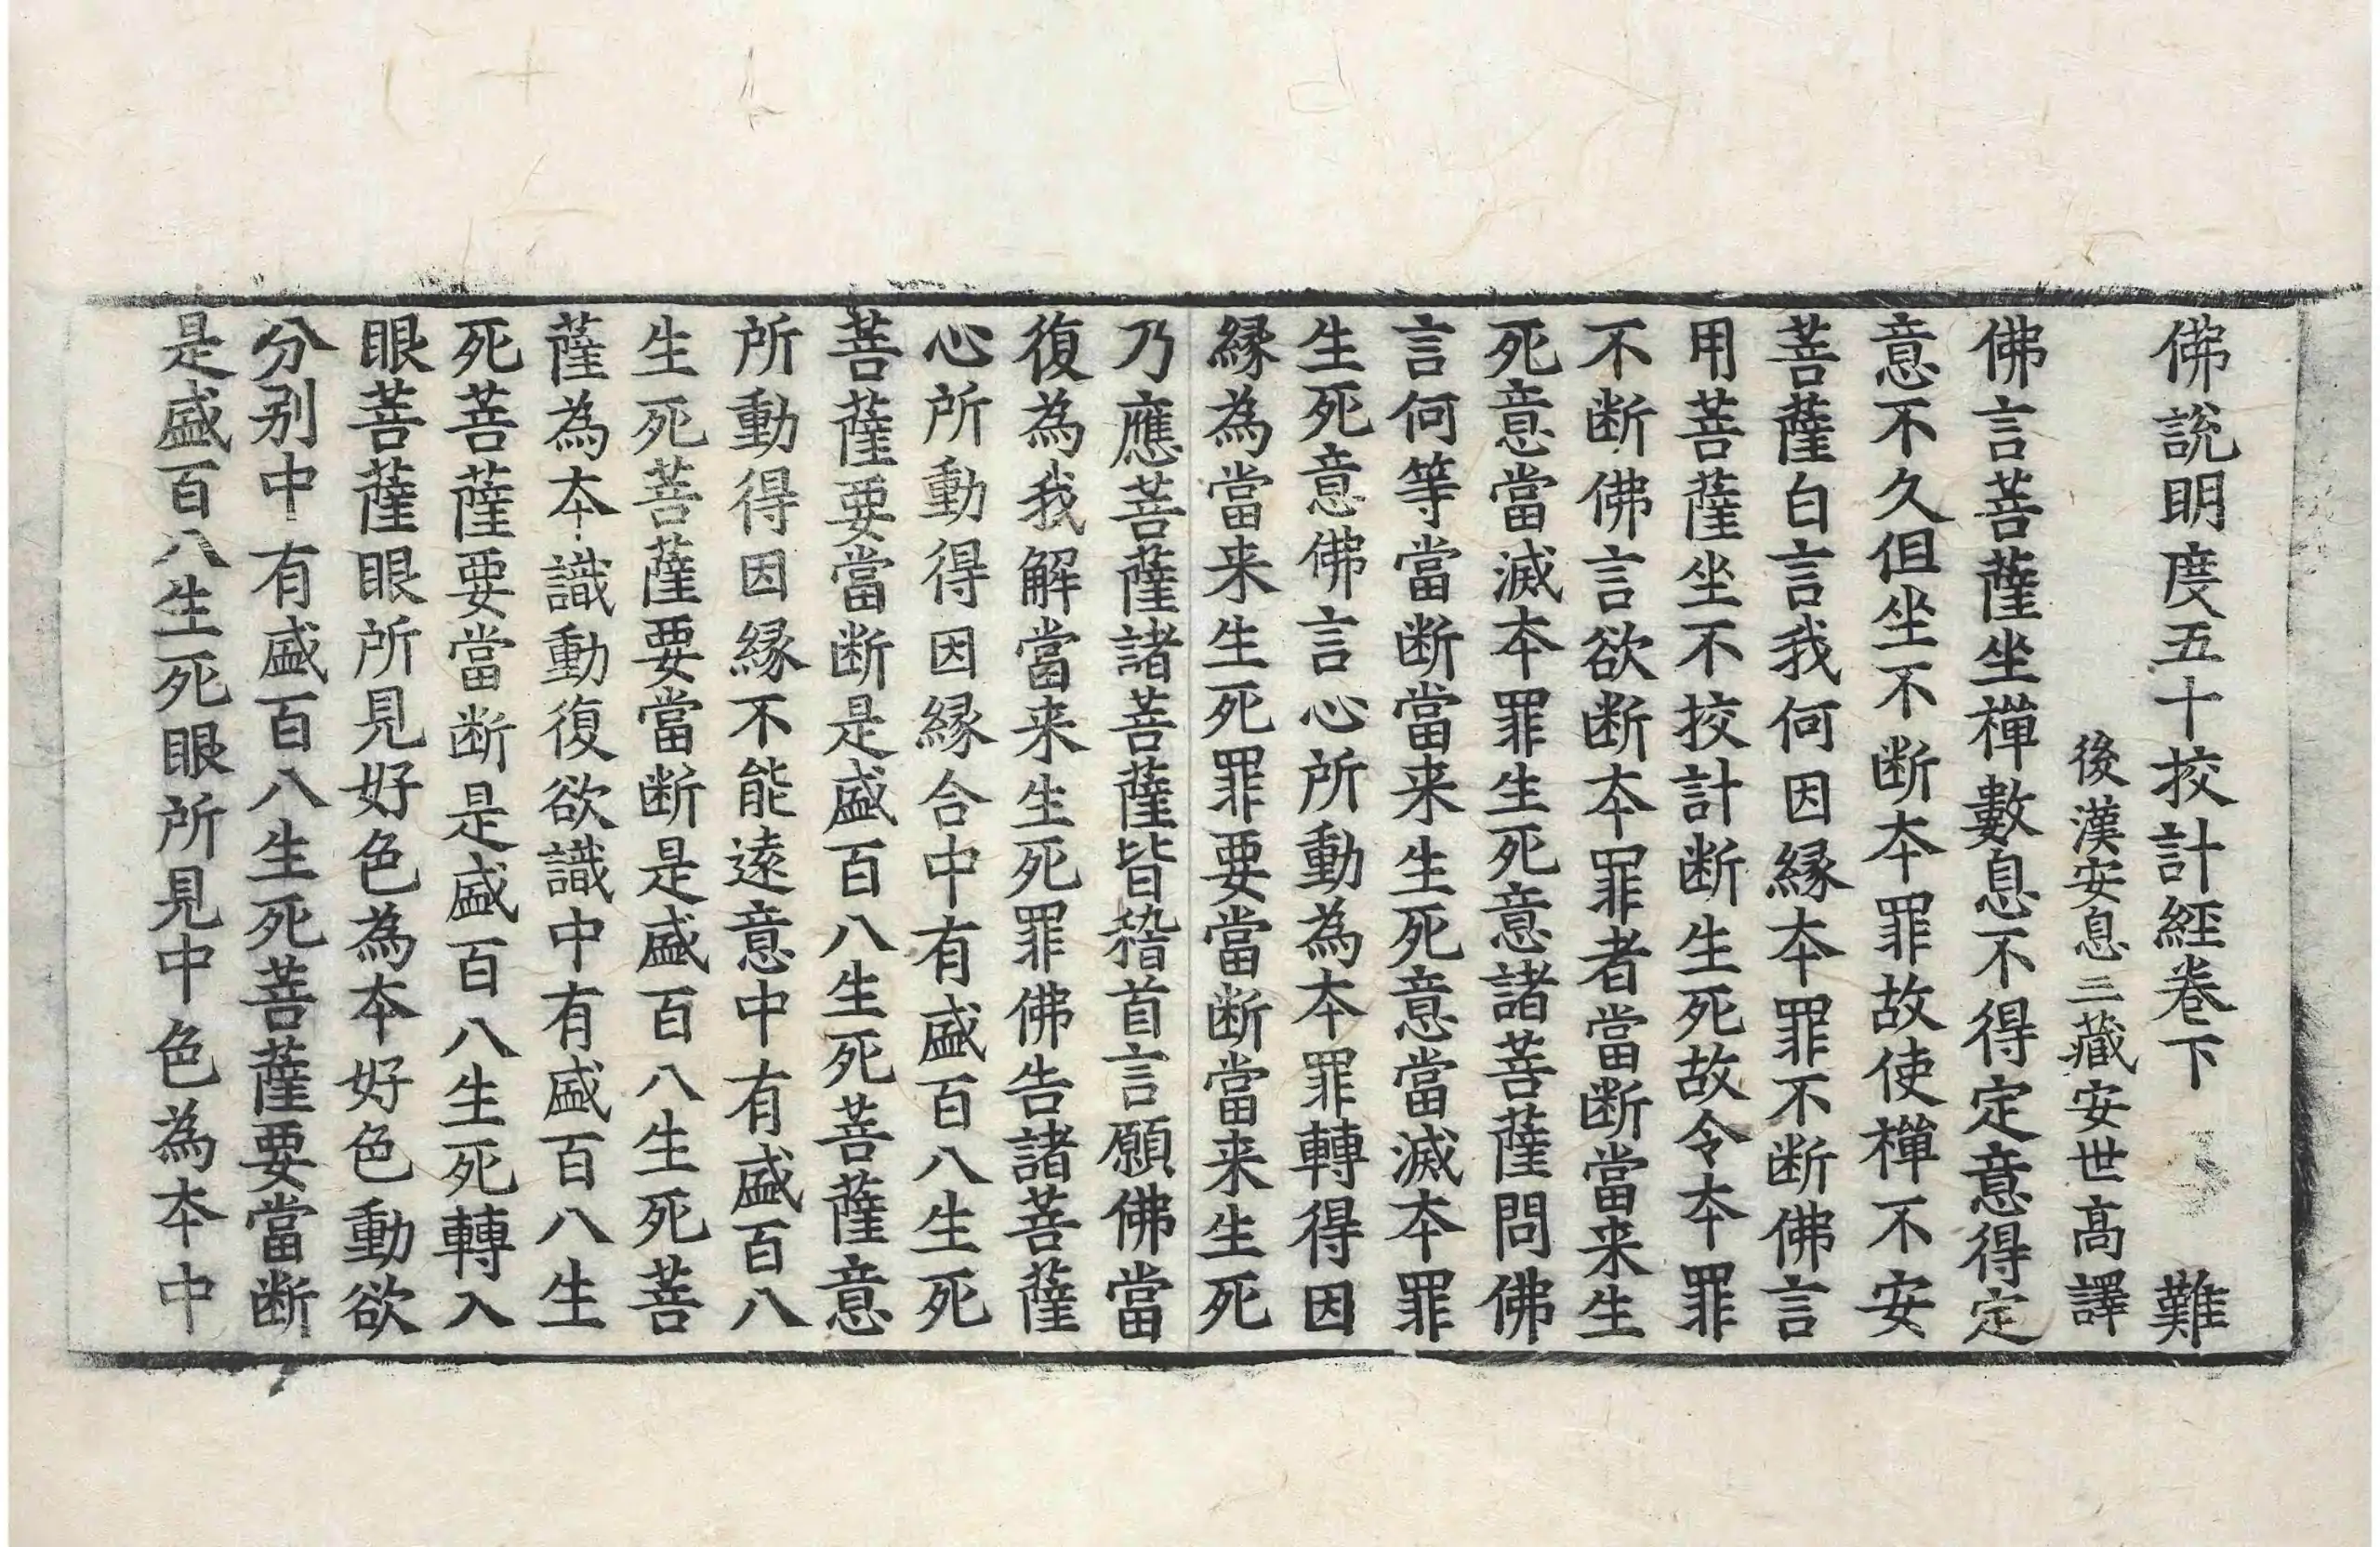 佛說明度五十挍計經卷下 難
後漢安息三藏安世髙譯
佛言菩薩坐禪數息不得定意得定
意不久但坐不断本罪故使禪不安
菩薩白言我何因縁本罪不断佛言
用菩薩坐不挍計断生死故令本罪
不断佛言欲断本罪者當断當来生
死意當滅本罪生死意諸菩薩問佛
言何等當断當来生死意當滅本罪
生死意佛言心所動為本罪轉得因
縁為當来生死罪要當断當来生死
乃應菩薩諸菩薩皆稽首言願佛當
復為我解當来生死罪佛告諸菩薩
心所動得因縁合中有盛百八生死
菩薩要當断是盛百八生死菩薩意
所動得因縁不能遠意中有盛百八
生死菩薩要當断是盛百八生死菩
薩為本識動復欲識中有盛百八生
死菩薩要當断是盛百八生死轉入
眼菩薩眼所見好色為本好色動欲
分别中有盛百八生死菩薩要當断
是盛百八生死眼所見中色為本中